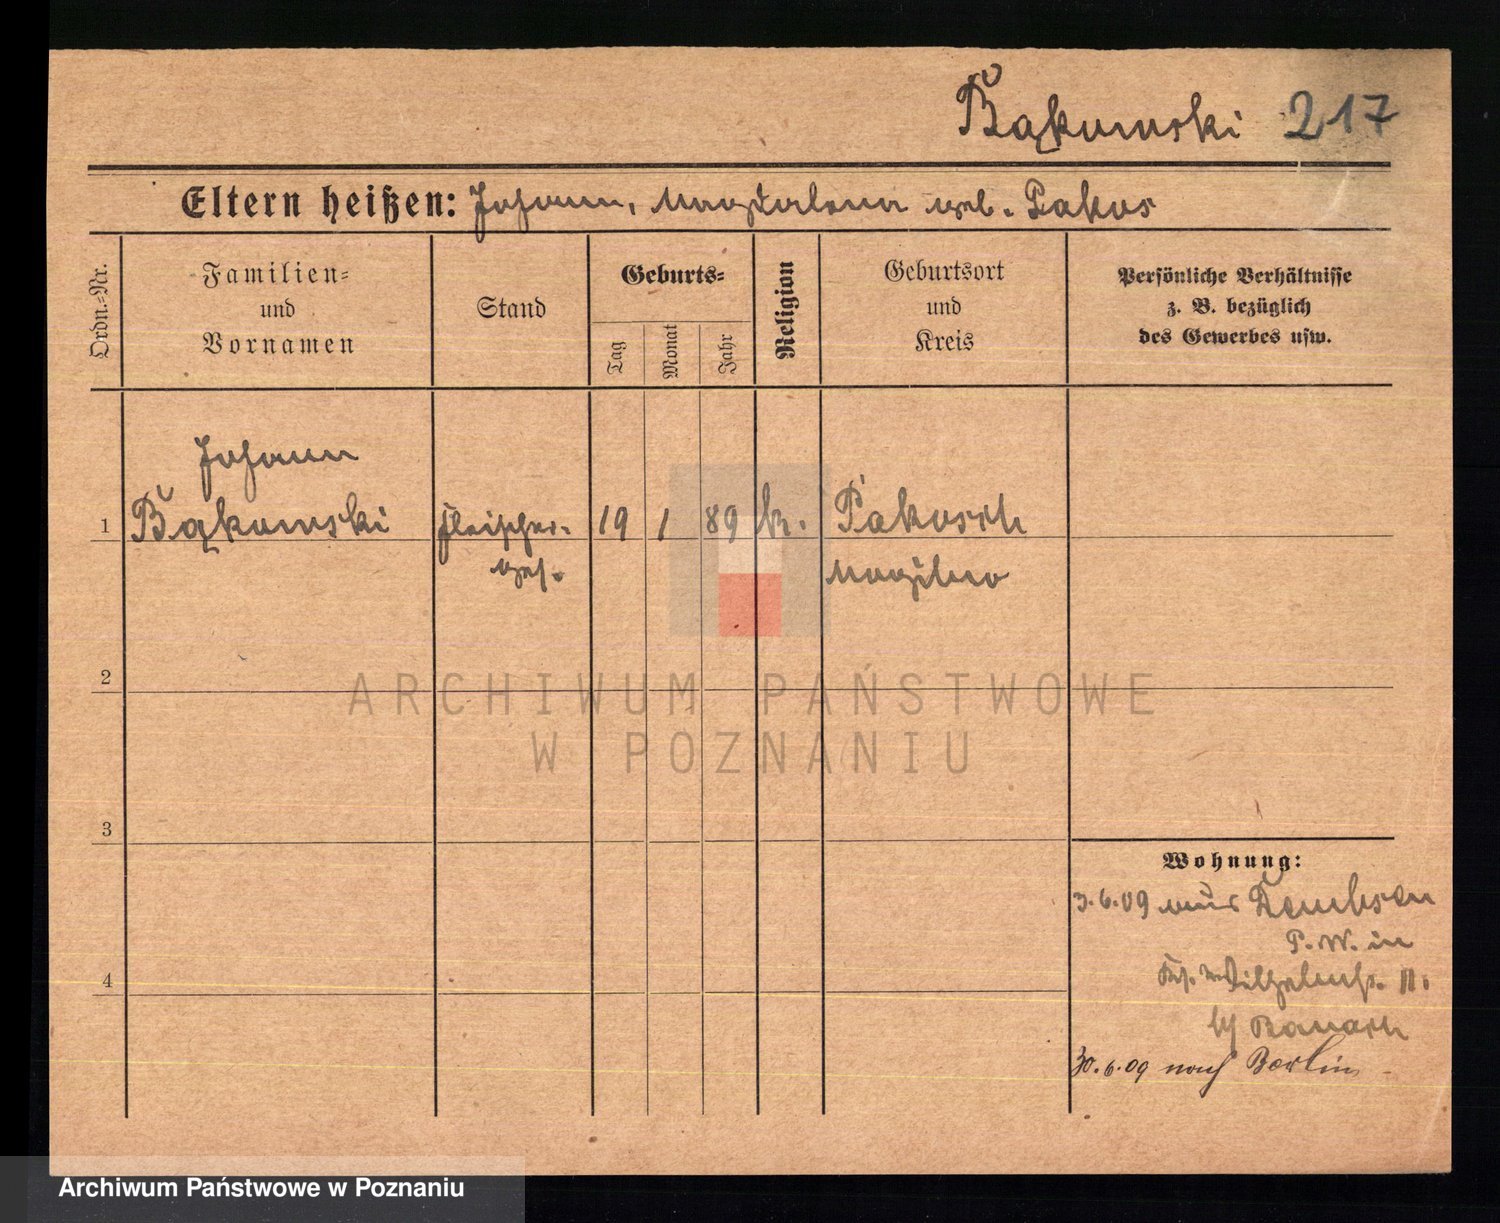 Bąkowski 217
Eltern heißen: Johann, Magdalena geb. Pakos
Ordn.-Nr.
Familien- und Vornamen
Stand
Geburts-
Tag
Monat
Jahr
Religion
Geburtsort und Kreis
Persönliche Verhältnisse
z. B. bezüglich
des Gewerbes usw.
1
Johann
Bąkowski
Fleischer-
ges.
19 1 89 k.
Pakosch
Mogilno
2
3
4
Wohnung:
3.6.09 aus Dembsen
P. W. in
Wilhelmstr. 11.
b/
30.6.09 nach Berlin
ARCHIWUM PAŃSTWOWE
W POZNANIU
Archiwum Państwowe w Poznaniu